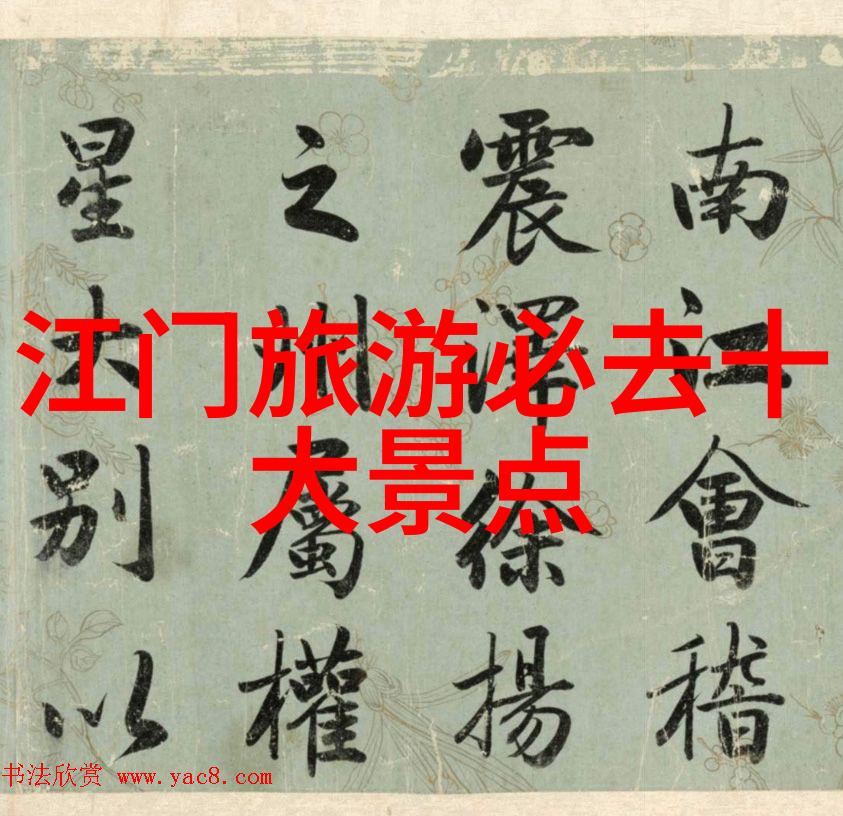 江门旅游必去十
大景点
南江會稽
震澤徐揚
之州屬權
星大別以
书法欣赏 www.yac8.com